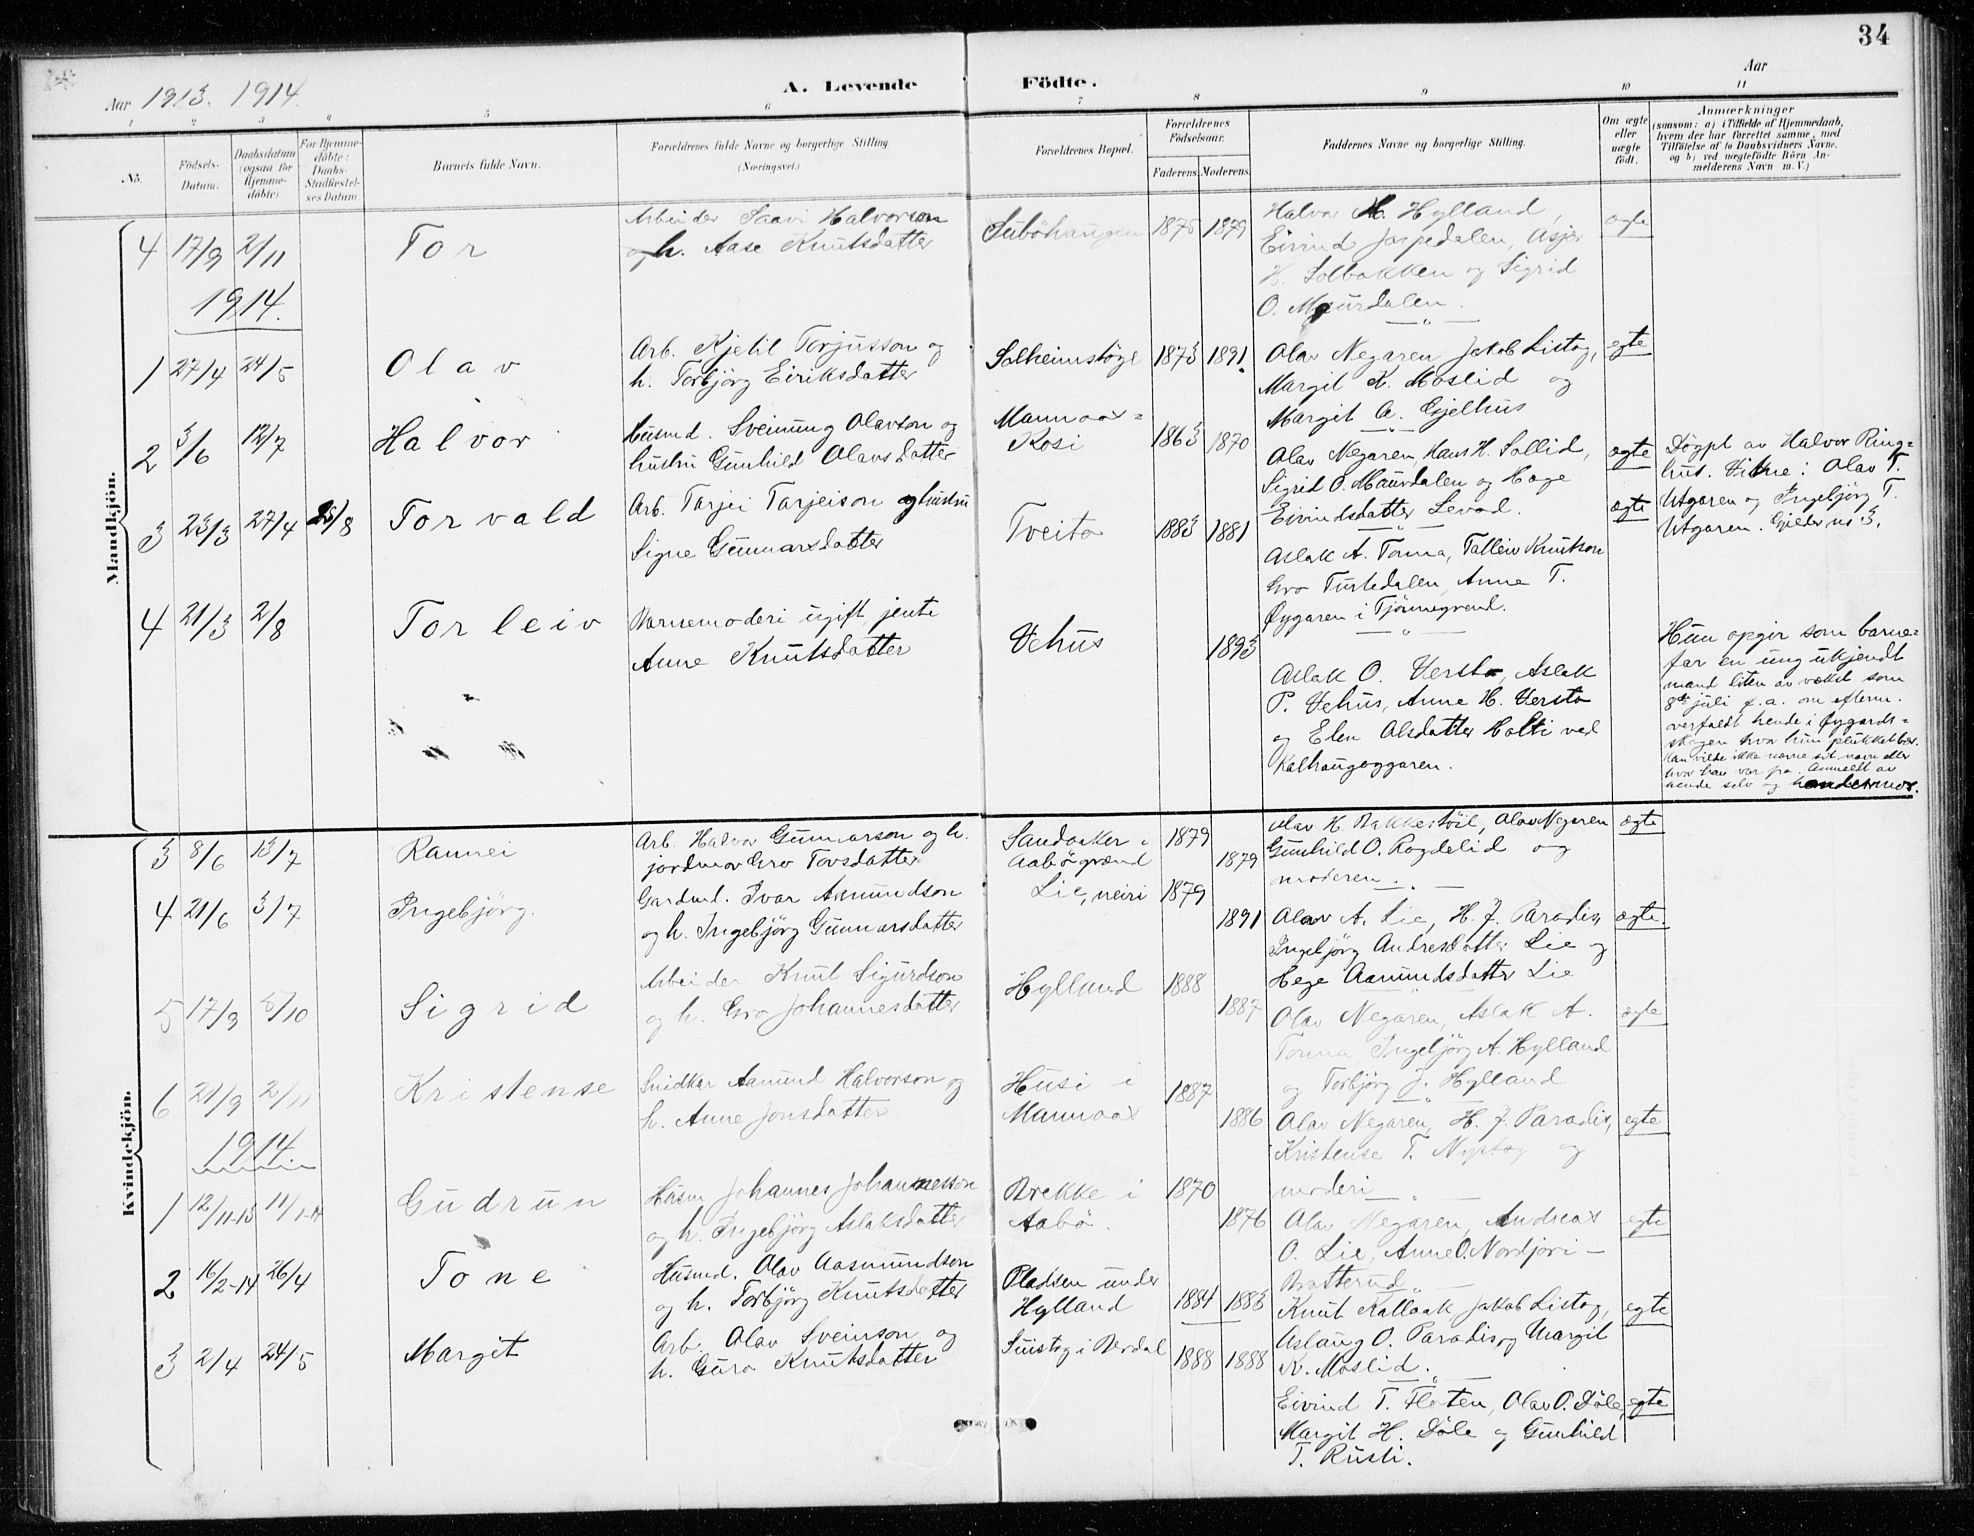 34
Aar 1913. 1914.
A. Levende Födte.
Aar
1 2 3 4 5 6 7 8 9 10 11
No.
Födsels-Datum.
Daabsdatum (ogsaa for Hjemme-döbte).
For Hjemme-döbte: Daabs-Stadfæstel-ses Datum.
Barnets fulde Navn.
Forældrenes fulde Navne og borgerlige Stilling.
(Næringsvei.)
Forældrenes Bopæl.
Forældrenes Födselsaar.
Faderens. Moderens.
Faddernes Navne og borgerlige Stilling.
Om ægte eller uægte födt.
Anmærkninger
(saasom: a) i Tilfælde af Hjemmedaab,
hvem der har forrettet samme, med
Tilföielse af to Daabsvidners Navne,
og b) ved uægtefödte Börn An-
melderens Navn m. V.)
Mandkjön.
4 17/9 2/11 Tor
Arbeider Saavi Halvorson
og h. Aase Knutsdatter
Suböhaugen 1875 1879
Halvor H. Hylland,
Eivind Jaspedalen, Asjer
H. Solbakken og Sigrid
O. Maurdalen.
ægte
1914.
1 27/4 24/5 Olav
Arb. Kjetil Torjusson og
h. Torbjörg Eiriksdatter
Solheimstöge 1873 1891
Olav Negaren, Jakob Listog,
Margit K. Moslid og
Margit A. Gjelhus
egte
2 3/6 12/7 Halvor
Husmd. Sveinung Olavson og
hustru Gunhild Olavsdatter
Mannaas=
Kosi 1863 1870
Olav Negaren, Hans H. Sollid,
Sigrid O. Maurdalen og Hæge
Eivindsdatter Levad.
ægte
Döypt av Halvor Ring=
hus. Vitne: Olav T.
Utgaren og Ingebjörg T.
Utgaren. Gjelder no 3.
3 23/3 27/4 25/8 Torvald
Arb. Tarjei Tarjeison og hustru
Signe Gunnarsdatter
Tveito 1883 1881
Aslak A. Tonna, Talleiv Knutson
Gro Turtedalen, Anne T.
Øygaren i Tjönnegrend.
ægte
4 21/3 2/8 Torleiv
Barnemoderi ugift jente
Anne Knutsdatter
Vehus 1893
Aslak O. Versto, Aslak
P. Vehus, Anne H. Versto
og Elen Alsdatter Holti ved
Kalhaugøygaren.
Hun opgir som barne=
far en ung ukjendt
mand liten av vækst som
8de juli f.a. om efterm.
overfaldt hende i Øygards=
skogen hvor hun plukket bær.
Han vilde ikke nævne sit navn eller
hvor han var fra. Anmeldt av
hende selv og
Kvindekjön.
3 8/6 13/7 Rannei
Arb. Halvor Gunnarson og h.
jordmor Gro Torsdatter
Sandaaker i
Aabögrænd 1879 1879
Olav H. Bakkestöil, Olav Negaren
Gunhild O. Rogdelid og
moderen.
ægte
4 21/6 3/7 Ingebjörg.
Gardmd. Ivar Aamundson
og h. Ingebjörg Gunnarsdatter
Lie, neiri 1879 1891
Olav A. Lie, H. J. Paradis,
Ingebjörg Andresdatter Lie og
Hege Aamundsdatter Lie
ægte.
5 17/9 5/10 Sigrid
Arbeider Knut Sigurdson
og h. Gro Johannesdatter
Hylland 1888 1887
Olav Negaren, Aslak A.
Tonna, Ingebjörg A. Hylland
og Torbjörg J. Hylland
ægte
6 21/9 2/11 Kristense
Snidker Aamund Halvorson og
h. Anne Jonsdatter
Husi i
Mannaas 1887 1886
Olav Negaren, H. J. Paradis,
Kristense T. Nystog og
moderi
egte
1914.
1 12/11-13 11/1-14 Gudrun
Husm Johannes Johannesson
og h. Ingebjörg Aslaksdatter
Brekke i
Aabö. 1870 1876
Olav Negaren, Andreas
O. Lie, Anne O. Nordjori-
Bratterud
egte
2 16/2-14 26/4 Tone
Husmd. Olav Aasmundson
og h. Torbjörg Knutsdatter
Pladsen under
Hylland 1884 1883
Knut Kallaak, Jakob Listog,
Aslaug O. Paradis og Margit
K. Moslid.
egte
3 2/4 24/5 Margit
Arb. Olav Sveinson og
h. Guro Knutsdatter
1888 1888
Eivind T. Floten, Olav O. Döle,
Margit H. Döle og Gunhild
T. Rusti.
egte